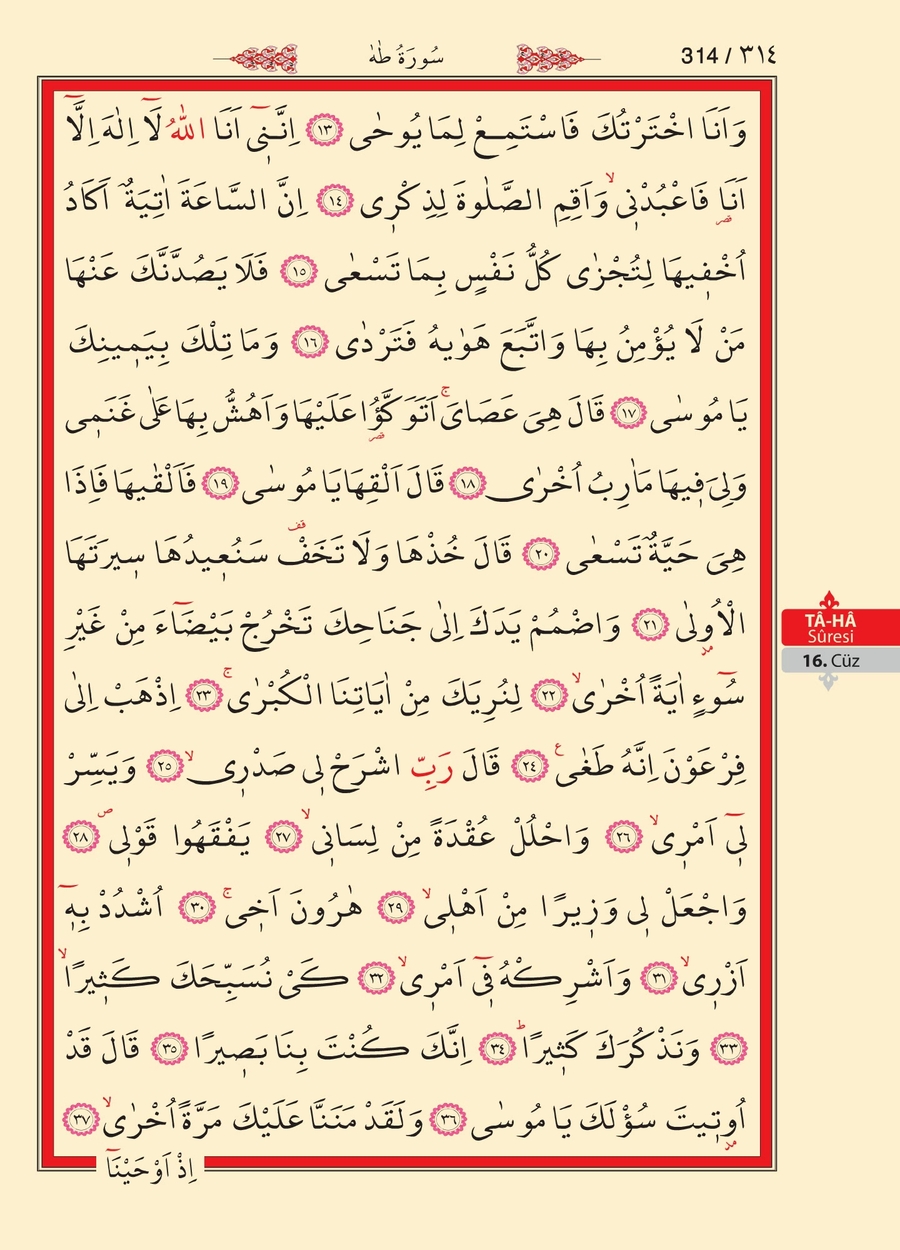 314 / ٣١٤
سُورَةُ طٰهٰ
وَاَنَا اخْتَرْتُكَ فَاسْتَمِعْ لِمَا يُوحٰى ﴿١٣﴾ اِنَّنٖٓى اَنَا اللّٰهُ لَٓا اِلٰهَ اِلَّٓا
اَنَا۬ فَاعْبُدْنٖىۙ وَاَقِمِ الصَّلٰوةَ لِذِكْرٖى ﴿١٤﴾ اِنَّ السَّاعَةَ اٰتِيَةٌ اَكَادُ
قصر
اُخْفٖيهَا لِتُجْزٰى كُلُّ نَفْسٍ بِمَا تَسْعٰى ﴿١٥﴾ فَلَا يَصُدَّنَّكَ عَنْهَا
مَنْ لَا يُؤْمِنُ بِهَا وَاتَّبَعَ هَوٰيهُ فَتَرْدٰى ﴿١٦﴾ وَمَا تِلْكَ بِيَمٖينِكَ
يَا مُوسٰى ﴿١٧﴾ قَالَ هِىَ عَصَاىَۚ اَتَوَكَّؤُ۬ا عَلَيْهَا وَاَهُشُّ بِهَا عَلٰى غَنَمٖى
قصر
وَلِىَ فٖيهَا مَاٰرِبُ اُخْرٰى ﴿١٨﴾ قَالَ اَلْقِهَا يَا مُوسٰى ﴿١٩﴾ فَاَلْقٰيهَا فَاِذَا
هِىَ حَيَّةٌ تَسْعٰى ﴿٢٠﴾ قَالَ خُذْهَا وَلَا تَخَفْ۠ سَنُعٖيدُهَا سٖيرَتَهَا
الْاُو۫لٰى ﴿٢١﴾ وَاضْمُمْ يَدَكَ اِلٰى جَنَاحِكَ تَخْرُجْ بَيْضَٓاءَ مِنْ غَيْرِ
مد
سُٓوءٍ اٰيَةً اُخْرٰىۙ ﴿٢٢﴾ لِنُرِيَكَ مِنْ اٰيَاتِنَا الْكُبْرٰىۚ ﴿٢٣﴾ اِذْهَبْ اِلٰى
فِرْعَوْنَ اِنَّهُ طَغٰىࣖ ﴿٢٤﴾ قَالَ رَبِّ اشْرَحْ لٖى صَدْرٖىۙ ﴿٢٥﴾ وَيَسِّرْ
لٖٓى اَمْرٖىۙ ﴿٢٦﴾ وَاحْلُلْ عُقْدَةً مِنْ لِسَانٖىۙ ﴿٢٧﴾ يَفْقَهُوا قَوْلٖىࣕ ﴿٢٨﴾
وَاجْعَلْ لٖى وَزٖيرًا مِنْ اَهْلٖىۙ ﴿٢٩﴾ هٰرُونَ اَخٖىۚ ﴿٣٠﴾ اُشْدُدْ بِهٖٓ
اَزْرٖىۙ ﴿٣١﴾ وَاَشْرِكْهُ فٖٓى اَمْرٖىۙ ﴿٣٢﴾ كَىْ نُسَبِّحَكَ كَثٖيرًاۙ
﴿٣٣﴾ وَنَذْكُرَكَ كَثٖيرًاؕ ﴿٣٤﴾ اِنَّكَ كُنْتَ بِنَا بَصٖيرًا ﴿٣٥﴾ قَالَ قَدْ
اُو۫تٖيتَ سُؤْلَكَ يَا مُوسٰى ﴿٣٦﴾ وَلَقَدْ مَنَنَّا عَلَيْكَ مَرَّةً اُخْرٰىۙ ﴿٣٧﴾
مد
اِذْ اَوْحَيْنَٓا
TÂ-HÂ
Sûresi
16. Cüz